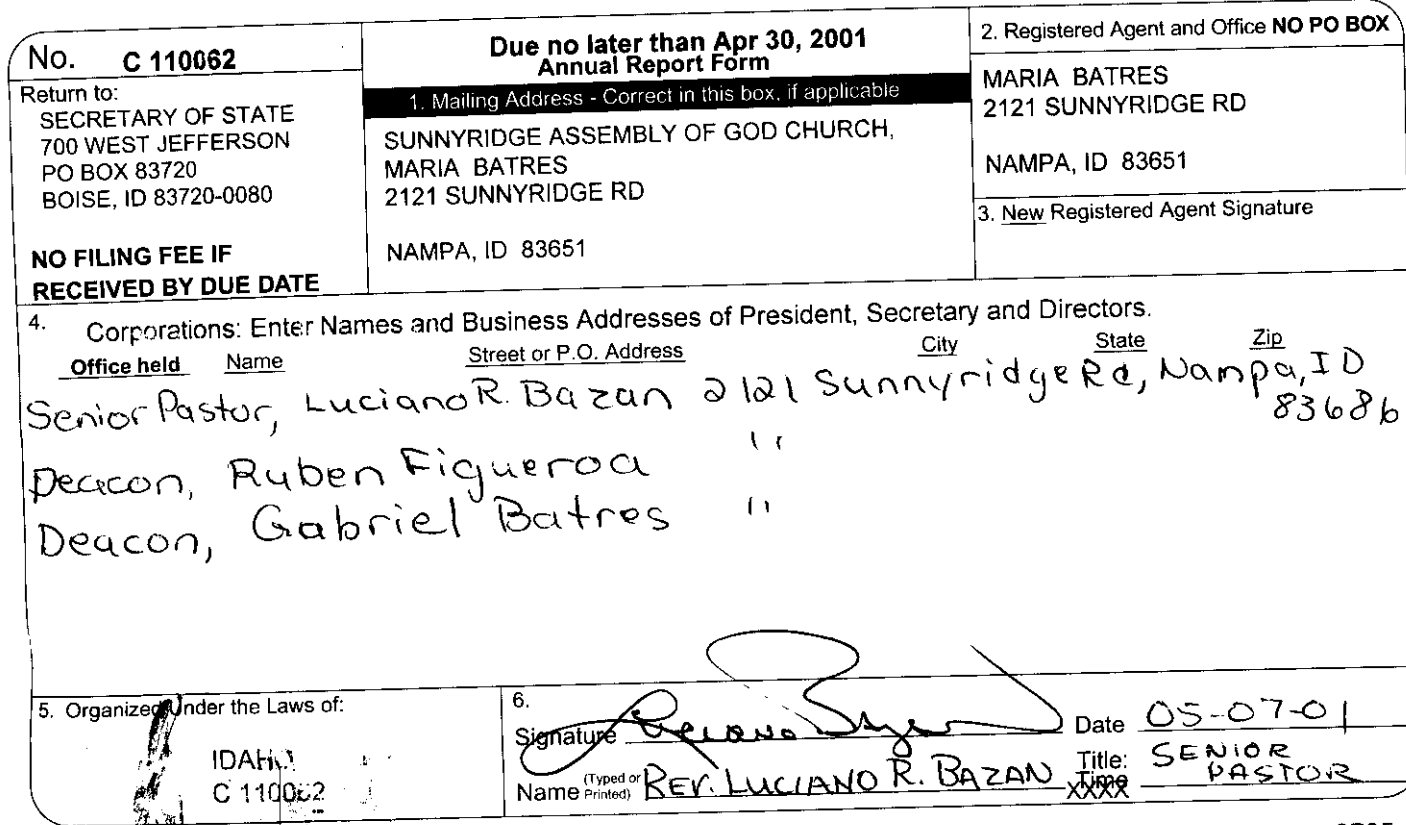 No. C 110062
Return to:
SECRETARY OF STATE
700 WEST JEFFERSON
PO BOX 83720
BOISE, ID 83720-0080
NO FILING FEE IF
RECEIVED BY DUE DATE
Due no later than Apr 30, 2001
Annual Report Form
1. Mailing Address - Correct in this box, if applicable
SUNNYRIDGE ASSEMBLY OF GOD CHURCH,
MARIA BATRES
2121 SUNNYRIDGE RD
NAMPA, ID 83651
2. Registered Agent and Office NO PO BOX
MARIA BATRES
2121 SUNNYRIDGE RD
NAMPA, ID 83651
3. New Registered Agent Signature
4. Corporations: Enter Names and Business Addresses of President, Secretary and Directors.
Office held Name Street or P.O. Address City State Zip
Senior Pastor, Luciano R. Bazan 2121 Sunnyridge Rd, Nampa, ID
83686
Deacon, Ruben Figueroa "
Deacon, Gabriel Batres "
5. Organized Under the Laws of:
IDAHO
C 110062
6.
Signature Luciano Bazan Date 05-07-01
Name (Typed or Printed) REV. LUCIANO R. BAZAN Title: SENIOR
Time PASTOR
XXXX